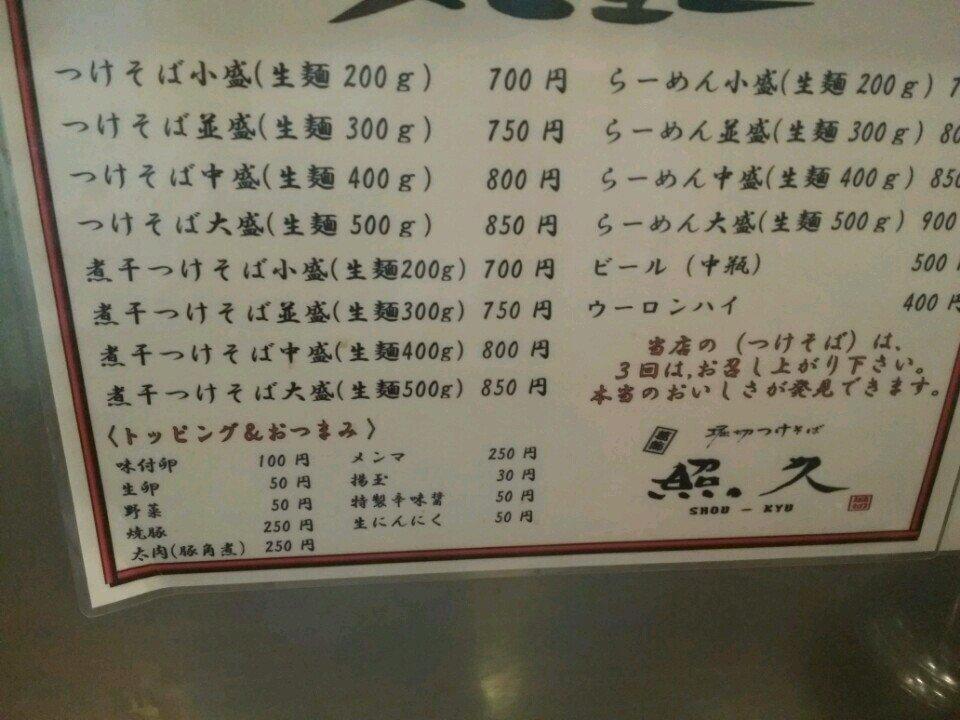 つけそば小盛(生麺 200g) 700 円
つけそば並盛(生麺 300g) 750 円
つけそば中盛(生麺 400g) 800 円
つけそば大盛(生麺 500g) 850 円
煮干つけそば小盛(生麺200g) 700 円
煮干つけそば並盛(生麺300g) 750 円
煮干つけそば中盛(生麺400g) 800 円
煮干つけそば大盛(生麺500g) 850 円
〈トッピング&おつまみ〉
味付卵 100 円
生卵 50 円
野菜 50 円
焼豚 250 円
太肉(豚角煮) 250 円
メンマ 250 円
揚玉 30 円
特製辛味醤 50 円
生にんにく 50 円
らーめん小盛(生麺 200g)
らーめん並盛(生麺 300g)
らーめん中盛(生麺 400g) 850
らーめん大盛(生麺 500g) 900
ビール (中瓶) 500
ウーロンハイ 400 円
当店の (つけそば) は、
3回は、お召し上がり下さい。
本当のおいしさが発見できます。
堀切つけそば
照久
SHOU - KYU